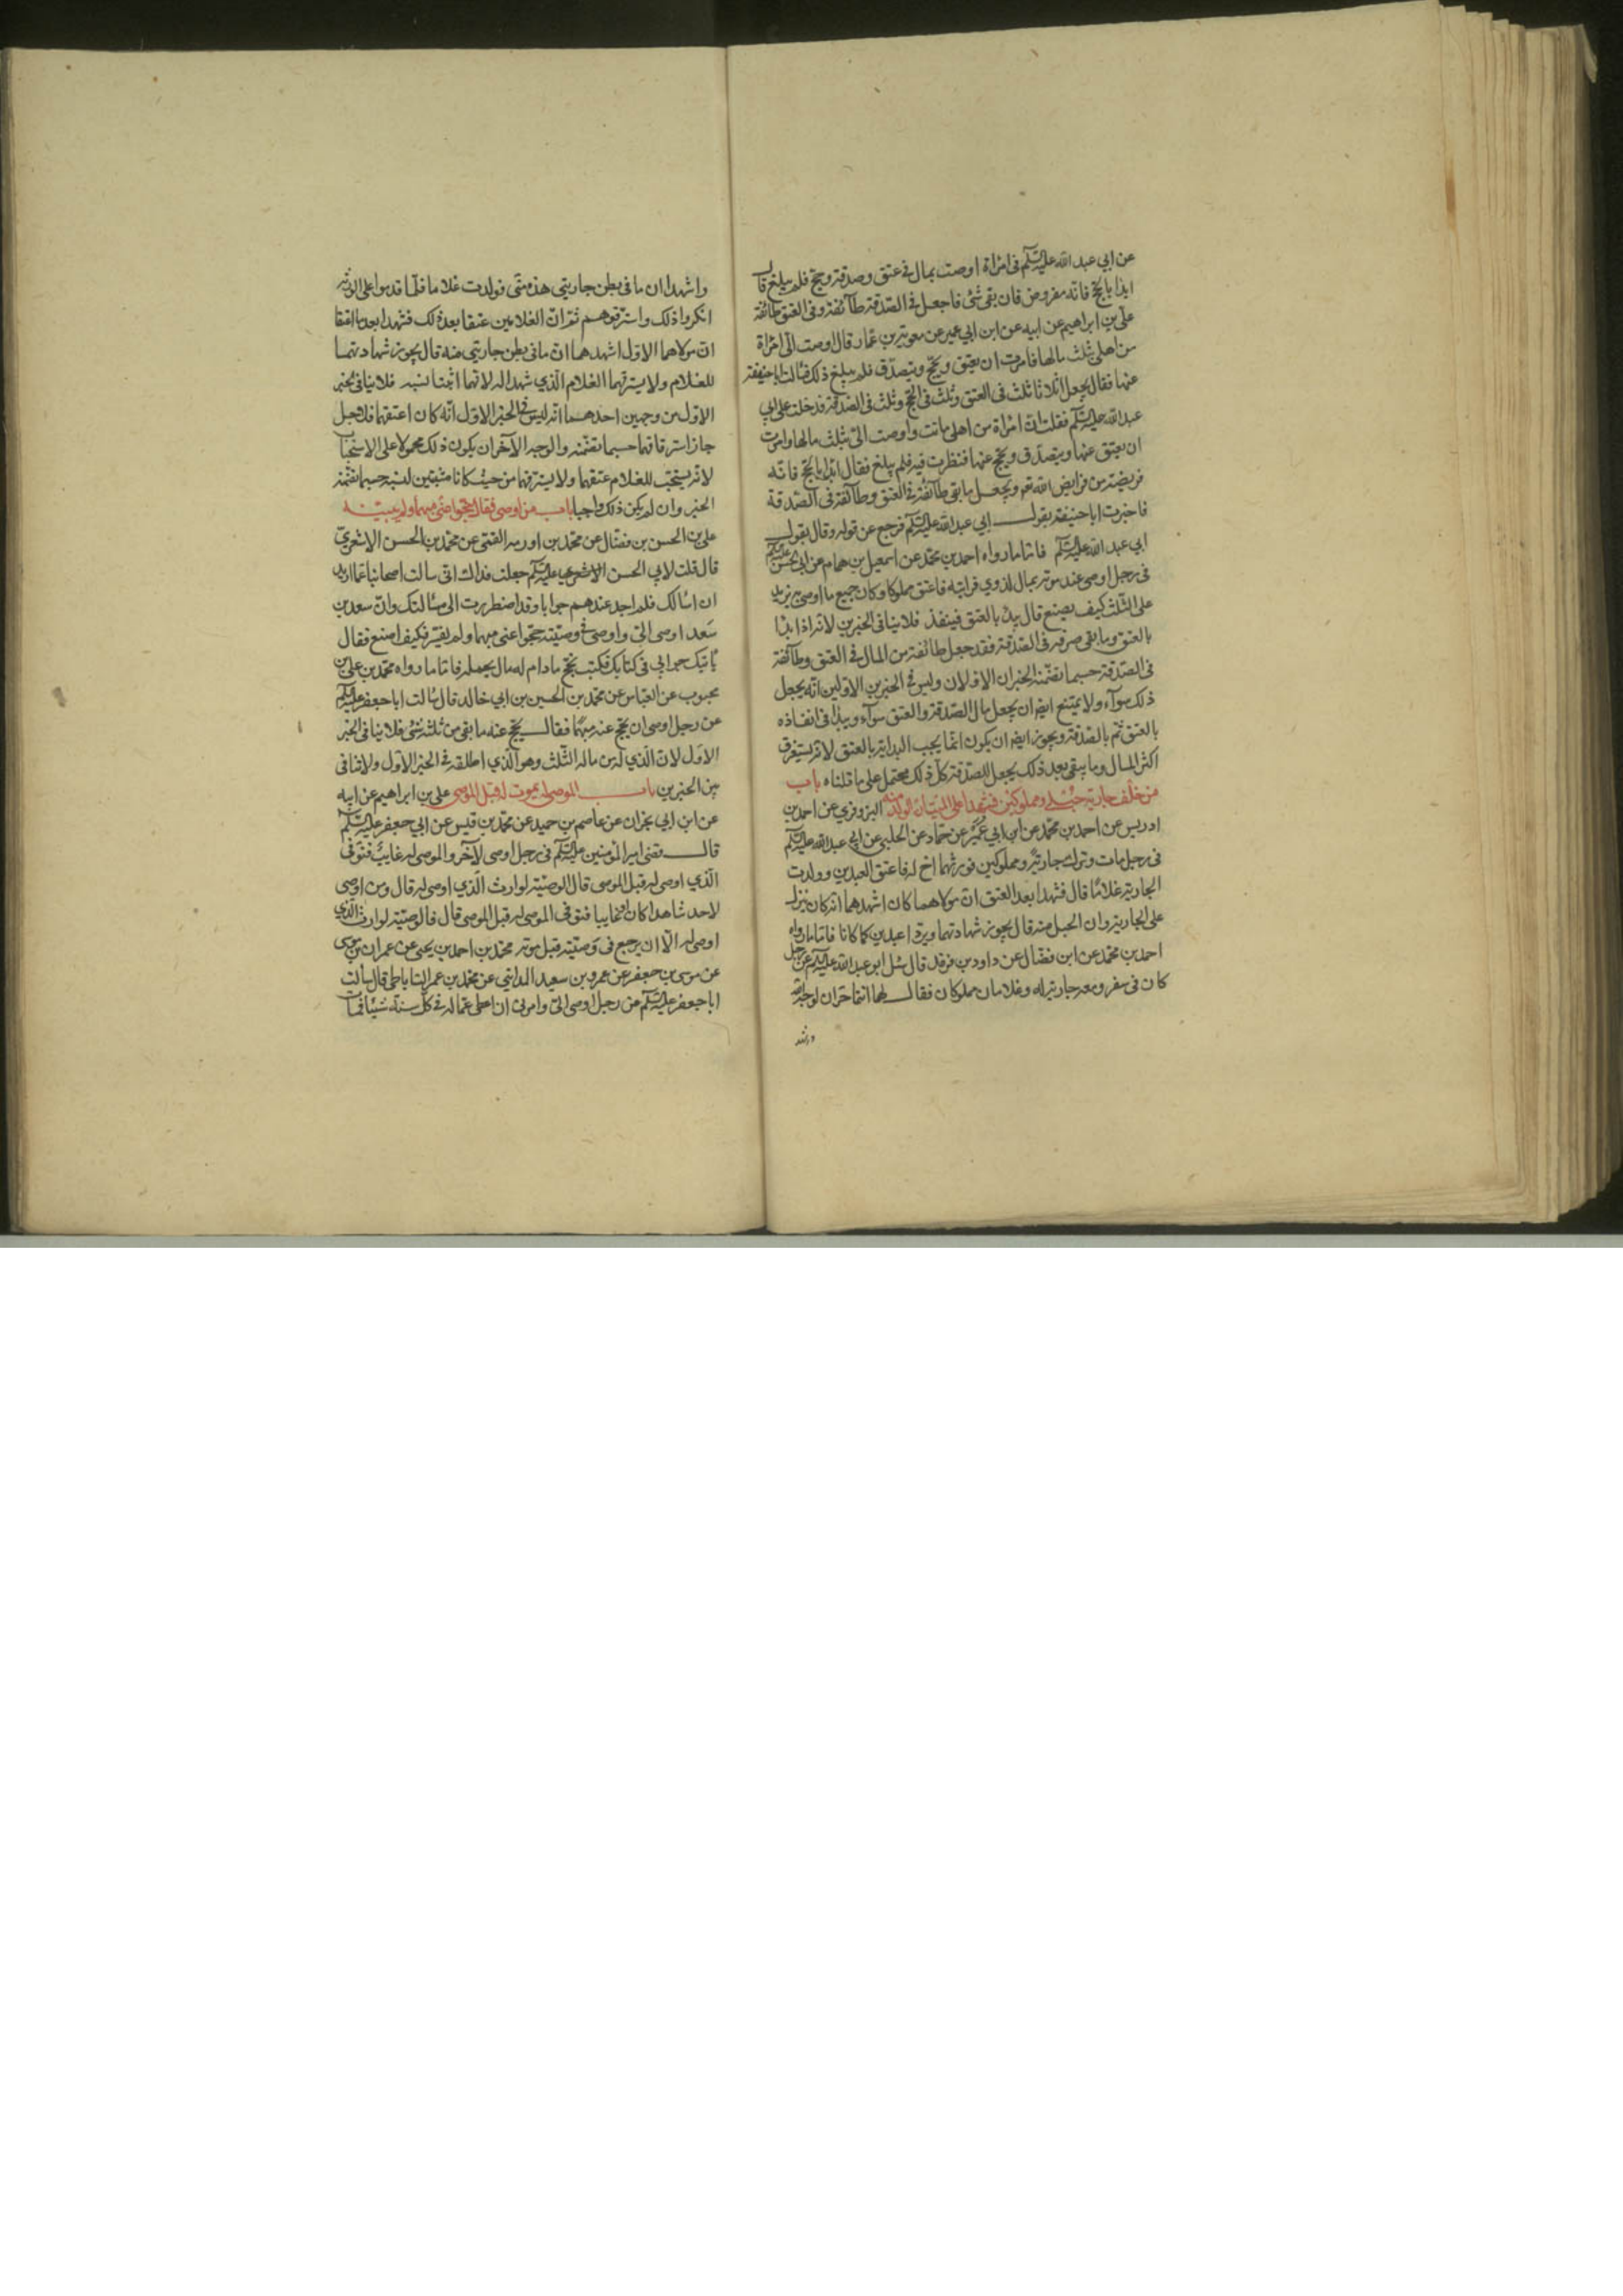 عن ابي عبد الله عليه السلم في امراة اوصت بمال في عتق وصدقة وحج فلم يبلغ قال
ابدا بالحج فانه مفروض فان بقى شئ فاجعل في الصدقة طائفة وفي العتق طائفة
على بن ابراهيم عن ابيه عن ابن ابي عمير عن معوية بن عمار قال اوصت الى امراة
من اهلى بثلث مالها فامرت ان يعتق ويحج ويتصدق فلم يبلغ ذلك فسالت ابا حنيفة
عنها فقال يجعل اثلاثا ثلث في العتق وثلث في الحج وثلث في الصدقة فدخلت على ابي
عبد الله عليه السلم فقلت ان امراة من اهلى ماتت واوصت الى بثلث مالها وامرت
ان يعتق عنها ويتصدق ويحج عنها فنظرت فيه فلم يبلغ فقال ابدا بالحج فانه
فريضة من فرايض الله تعـ ويجعل ما بقى طائفة في العتق وطائفة في الصدقة
فاخبرت ابا حنيفة بقول ابي عبد الله عليه السلم فرجع عن قوله وقال بقول
ابي عبد الله عليه السلم فاما ما رواه احمد بن محمد عن اسمعيل بن همام عن ابي الحسن عليه السلم
في رجل اوصى عند موته بمال لذوي قرابته فاعتق مملوكا وكان جميع ما اوصى به يزيد
على الثلث كيف يصنع قال يبدا بالعتق فينفذ فلا ينافي الخبرين لانه اذا بدا
بالعتق وما بقى صرفه في الصدقة فقد جعل طائفة من المال في العتق وطائفة
في الصدقة حسبما تضمنه الخبران الاولان وليس في الخبرين الاولين انه يجعل
ذلك سوآء ولا يمتنع ايضا ان يجعل مال الصدقة والعتق سوآء ويبدا في انفاذه
بالعتق ثم بالصدقة ويجوز ايضا ان يكون انما يجب البداية بالعتق لانه يستغرق
اكثر المال وما يبقى بعد ذلك يجعل للصدقة كل ذلك محتمل على ما قلناه باب
من خلف جارية حبلى ومملوكين فشهدا على الميت ان الولد منه البزوفري عن احمد بن
ادريس عن احمد بن محمد عن ابن ابي عمير عن حماد عن الحلبي عن ابي عبد الله عليه السلم
في رجل مات وترك جارية ومملوكين فورثهما اخ له فاعتق العبدين وولدت
الجارية غلاما قال فشهدا بعد العتق ان مولاهما كان اشهدهما انه كان ينزل
على الجارية وان الحبل منه قال يجوز شهادتهما ويردا عبدين كما كانا فاما ما رواه
احمد بن محمد عن ابن فضال عن داود بن فرقد قال سئل ابو عبد الله عليه السلم عن رجل
كان في سفر ومعه جارية له وغلامان مملوكان فقال لهما انتما حران لوجه الله
واشهد
واشهدا ان ما في بطن جاريتي هذه منى فولدت غلاما فلما قدموا على الورثة
انكروا ذلك واسترقوهم ثم ان الغلامين عتقا بعد ذلك فشهدا بعد ما اعتقا
ان مولاهما الاول اشهدهما ان ما في بطن جاريتي منه قال يجوز شهادتهما
للغلام ولا يسترقهما الغلام الذي شهدا له لانهما اثبتا نسبه فلا ينافي الخبر
الاول من وجهين احدهما انه ليس في الخبر الاول انه كان اعتقهما فلاجل
جاز استرقاقهما حسبما تضمنه والوجه الآخر ان يكون ذلك محمولا على الاستحباب
لانه يستحب للغلام عتقهما ولا يسترقهما من حيث كانا مثبتين لنسبه حسبما تضمنه
الخبر وان لم يكن ذلك واجبا باب من اوصى فقال حجوا عنى مبهما ولم يبينه
على بن الحسن بن فضال عن محمد بن اورمه القمى عن محمد بن الحسن الاشعري
قال قلت لابي الحسن الاشعري عليه السلم جعلت فداك انى سالت اصحابنا عما اريد
ان اسالك فلم اجد عندهم جوابا وقد اضطررت الى مسالتك وان سعد بن
سعد اوصى الى واوصى في وصيته حجوا عنى مبهما ولم يفسر فكيف اصنع فقال
ياتيك جوابي في كتابك فكتب يحج ما دام له مال يحمله فاما ما رواه محمد بن على بن
محبوب عن العباس عن محمد بن الحسين بن ابي خالد قال سالت ابا جعفر عليه السلم
عن رجل اوصى ان يحج عنه مبهما فقال يحج عنه ما بقى من ثلثه شئ فلا ينافي الخبر
الاول لان الذي له من ماله الثلث وهو الذي اطلقه في الخبر الاول ولا تنافي
بين الخبرين باب الموصى له يموت قبل الموصى على بن ابراهيم عن ابيه
عن ابن ابي نجران عن عاصم بن حميد عن محمد بن قيس عن ابي جعفر عليه السلم
قال قضى امير المؤمنين عليه السلم في رجل اوصى لآخر والموصى له غايب فتوفى
الذي اوصى له قبل الموصى قال الوصية لوارث الذي اوصى له قال ومن اوصى
لاحد شاهدا كان او غايبا فتوفى الموصى له قبل الموصى قال فالوصية لوارث الذي
اوصى له الا ان يرجع في وصيته قبل موته محمد بن احمد بن يحيى عن عمران بن موسى
عن موسى بن جعفر عن عمرو بن سعيد المدايني عن محمد بن عمر الساباطى قال سالت
ابا جعفر عليه السلم عن رجل اوصى الى وامرنى ان اعطى عما له في كل سنة شيئا فمات